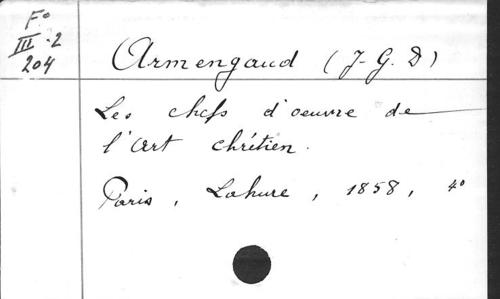 F°
III.2
204
Armengaud (J-G. D)
Les chefs d'oeuvre de
l'art chrétien.
Paris, Lahure, 1858, 4°